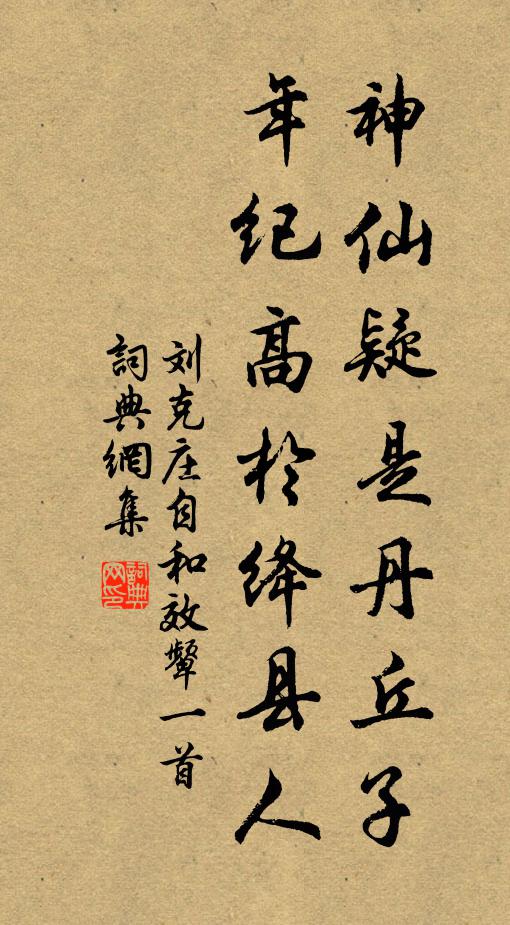 神仙疑是丹丘子
年纪高於绛县人
刘克庄自和效颦一首
詞典網集
詞典网印